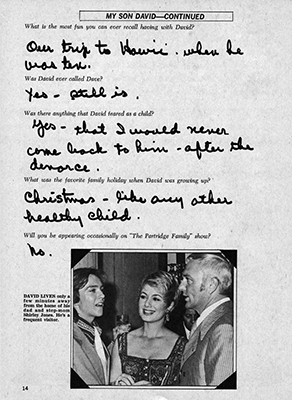 MY SON DAVID—CONTINUED
What is the most fun you can ever recall having with David?
Our trip to Hawii. when he
was ten.
Was David ever called Dave?
Yes - still is.
Was there anything that David feared as a child?
Yes - that I would never
come back to him - after the
devorce.
What was the favorite family holiday when David was growing up?
Christmas - like any other
healthy child.
Will you be appearing occasionally on "The Partridge Family" show?
No.
DAVID LIVES only a
few minutes away
from the home of his
dad and step-mom
Shirley Jones. He's a
frequent visitor.
14